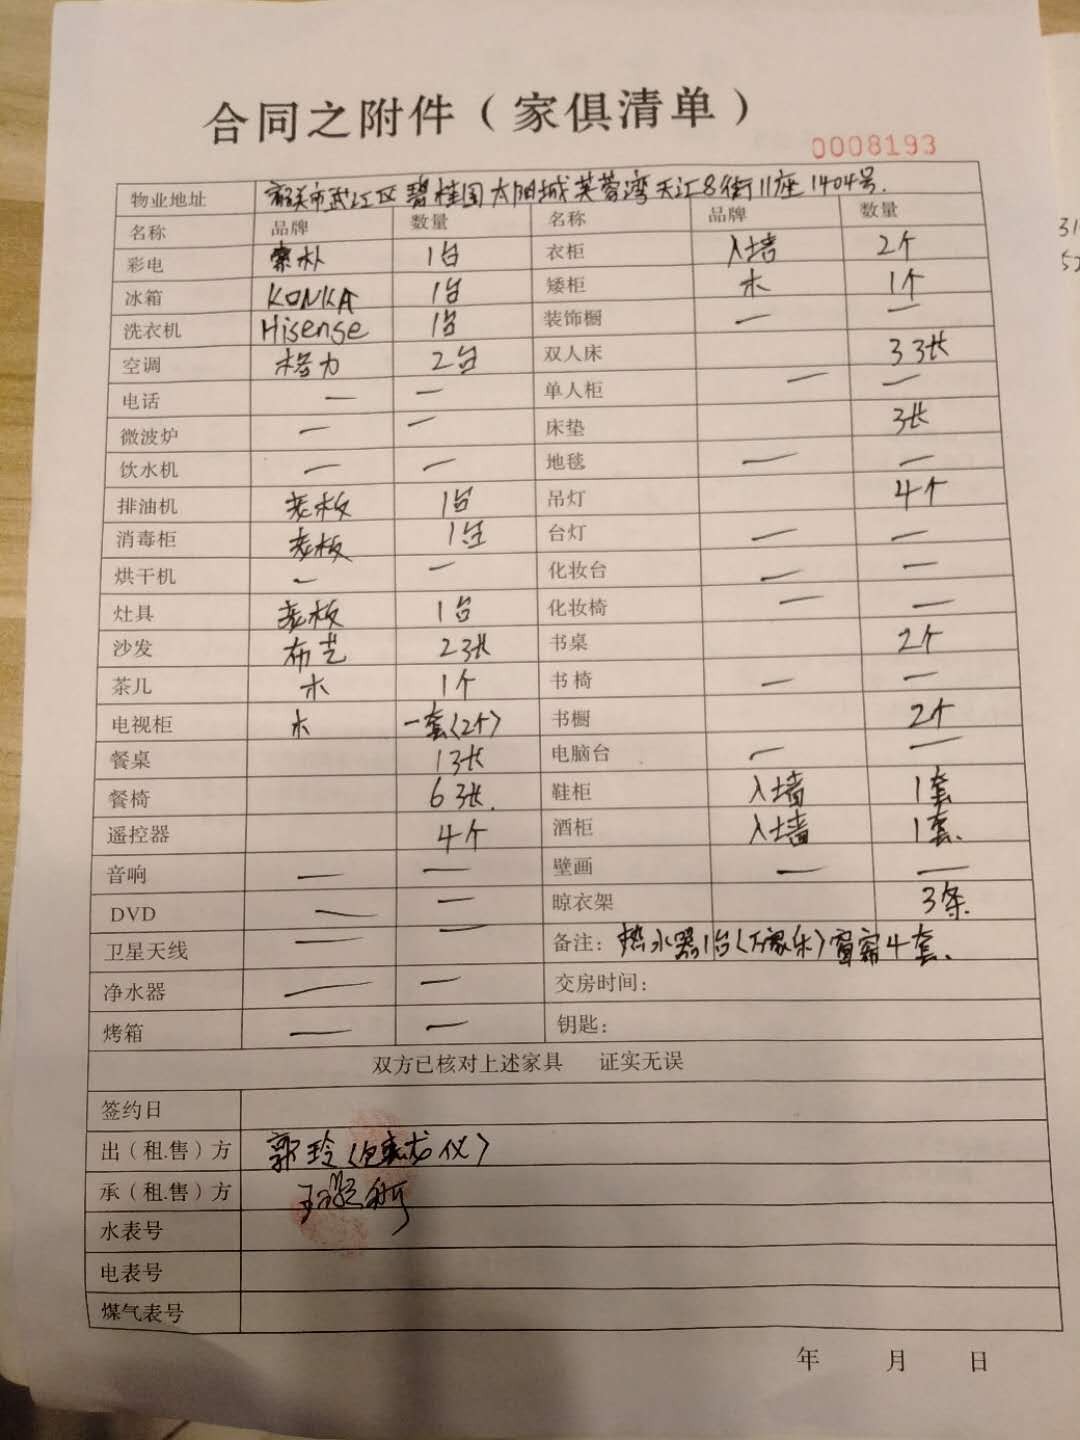 合同之附件（家俱清单）
0008193
物业地址 韶关市武江区碧桂园太阳城芙蓉湾天汇8街11座1404号.
名称 品牌 数量 名称 品牌 数量
彩电 索朴 1台 衣柜 入墙 2个
冰箱 KONKA 1台 矮柜 木 1个
洗衣机 Hisense 1台 装饰橱 — —
空调 格力 2台 双人床 3张
电话 — — 单人柜 — —
微波炉 — — 床垫 3张
饮水机 — — 地毯 — —
排油机 老板 1台 吊灯 4个
消毒柜 老板 1台 台灯 — —
烘干机 — — 化妆台 — —
灶具 老板 1台 化妆椅 — —
沙发 布艺 2张 书桌 2个
茶几 木 1个 书椅 — —
电视柜 木 一套(2个) 书橱 2个
餐桌 1张 电脑台 — —
餐椅 6张. 鞋柜 入墙 1套
遥控器 4个 酒柜 入墙 1套.
音响 — — 壁画 — —
DVD — — 晾衣架 3条.
卫星天线 — — 备注：热水器1台(万家乐)窗帘4套.
净水器 — — 交房时间：
烤箱 — — 钥匙：
双方已核对上述家具 证实无误
签约日
出（租.售）方 郭玲
承（租.售）方
水表号
电表号
煤气表号
年 月 日